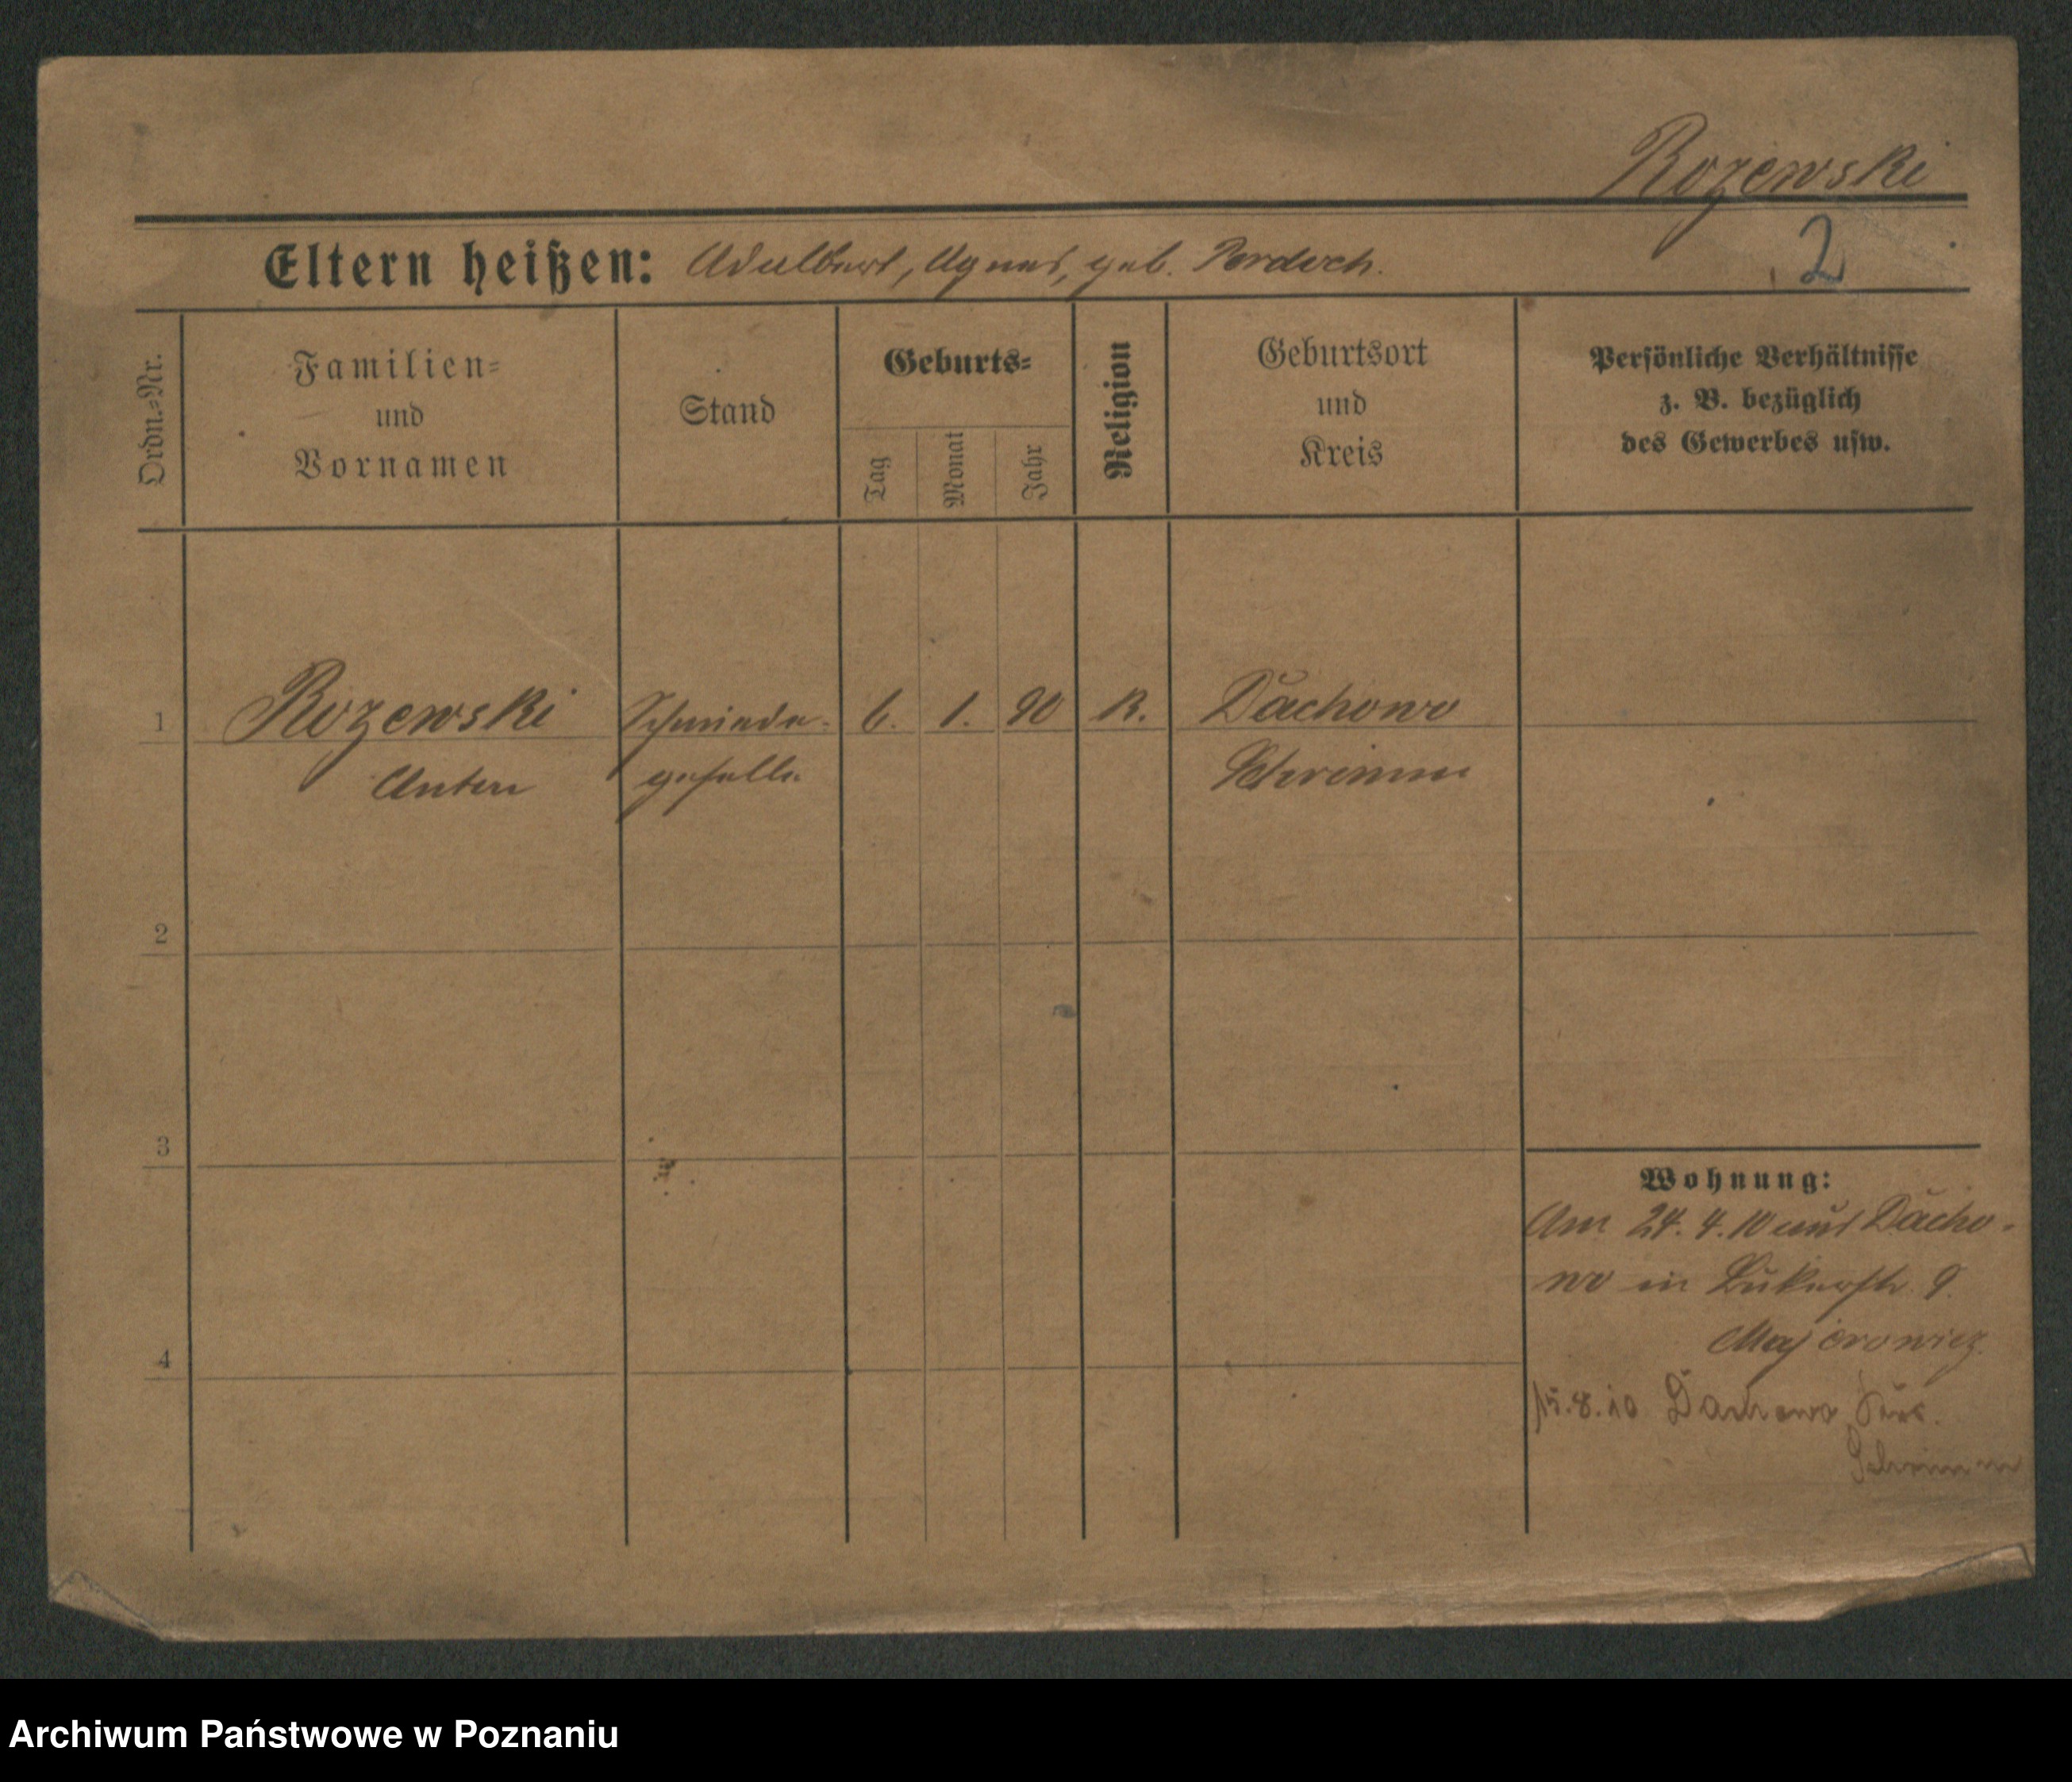 Rozewski
Eltern heißen: Adalbert, Agnes, geb. Pordoch.
2
Ordn.-Nr.
Familien-
und
Vornamen
Stand
Geburts-
Tag
Monat
Jahr
Religion
Geburtsort
und
Kreis
Persönliche Verhältnisse
z. B. bezüglich
des Gewerbes usw.
1 Rozewski Schmiede- 6. 1. 90 K. Dachowo
Anton geselle Schrimm
2
3
4
Wohnung:
Am 24. 4. 10 aus Dacho-
wo in 9.
Majerowicz.
15.8.10 Dachowo
Schrimm
Archiwum Państwowe w Poznaniu